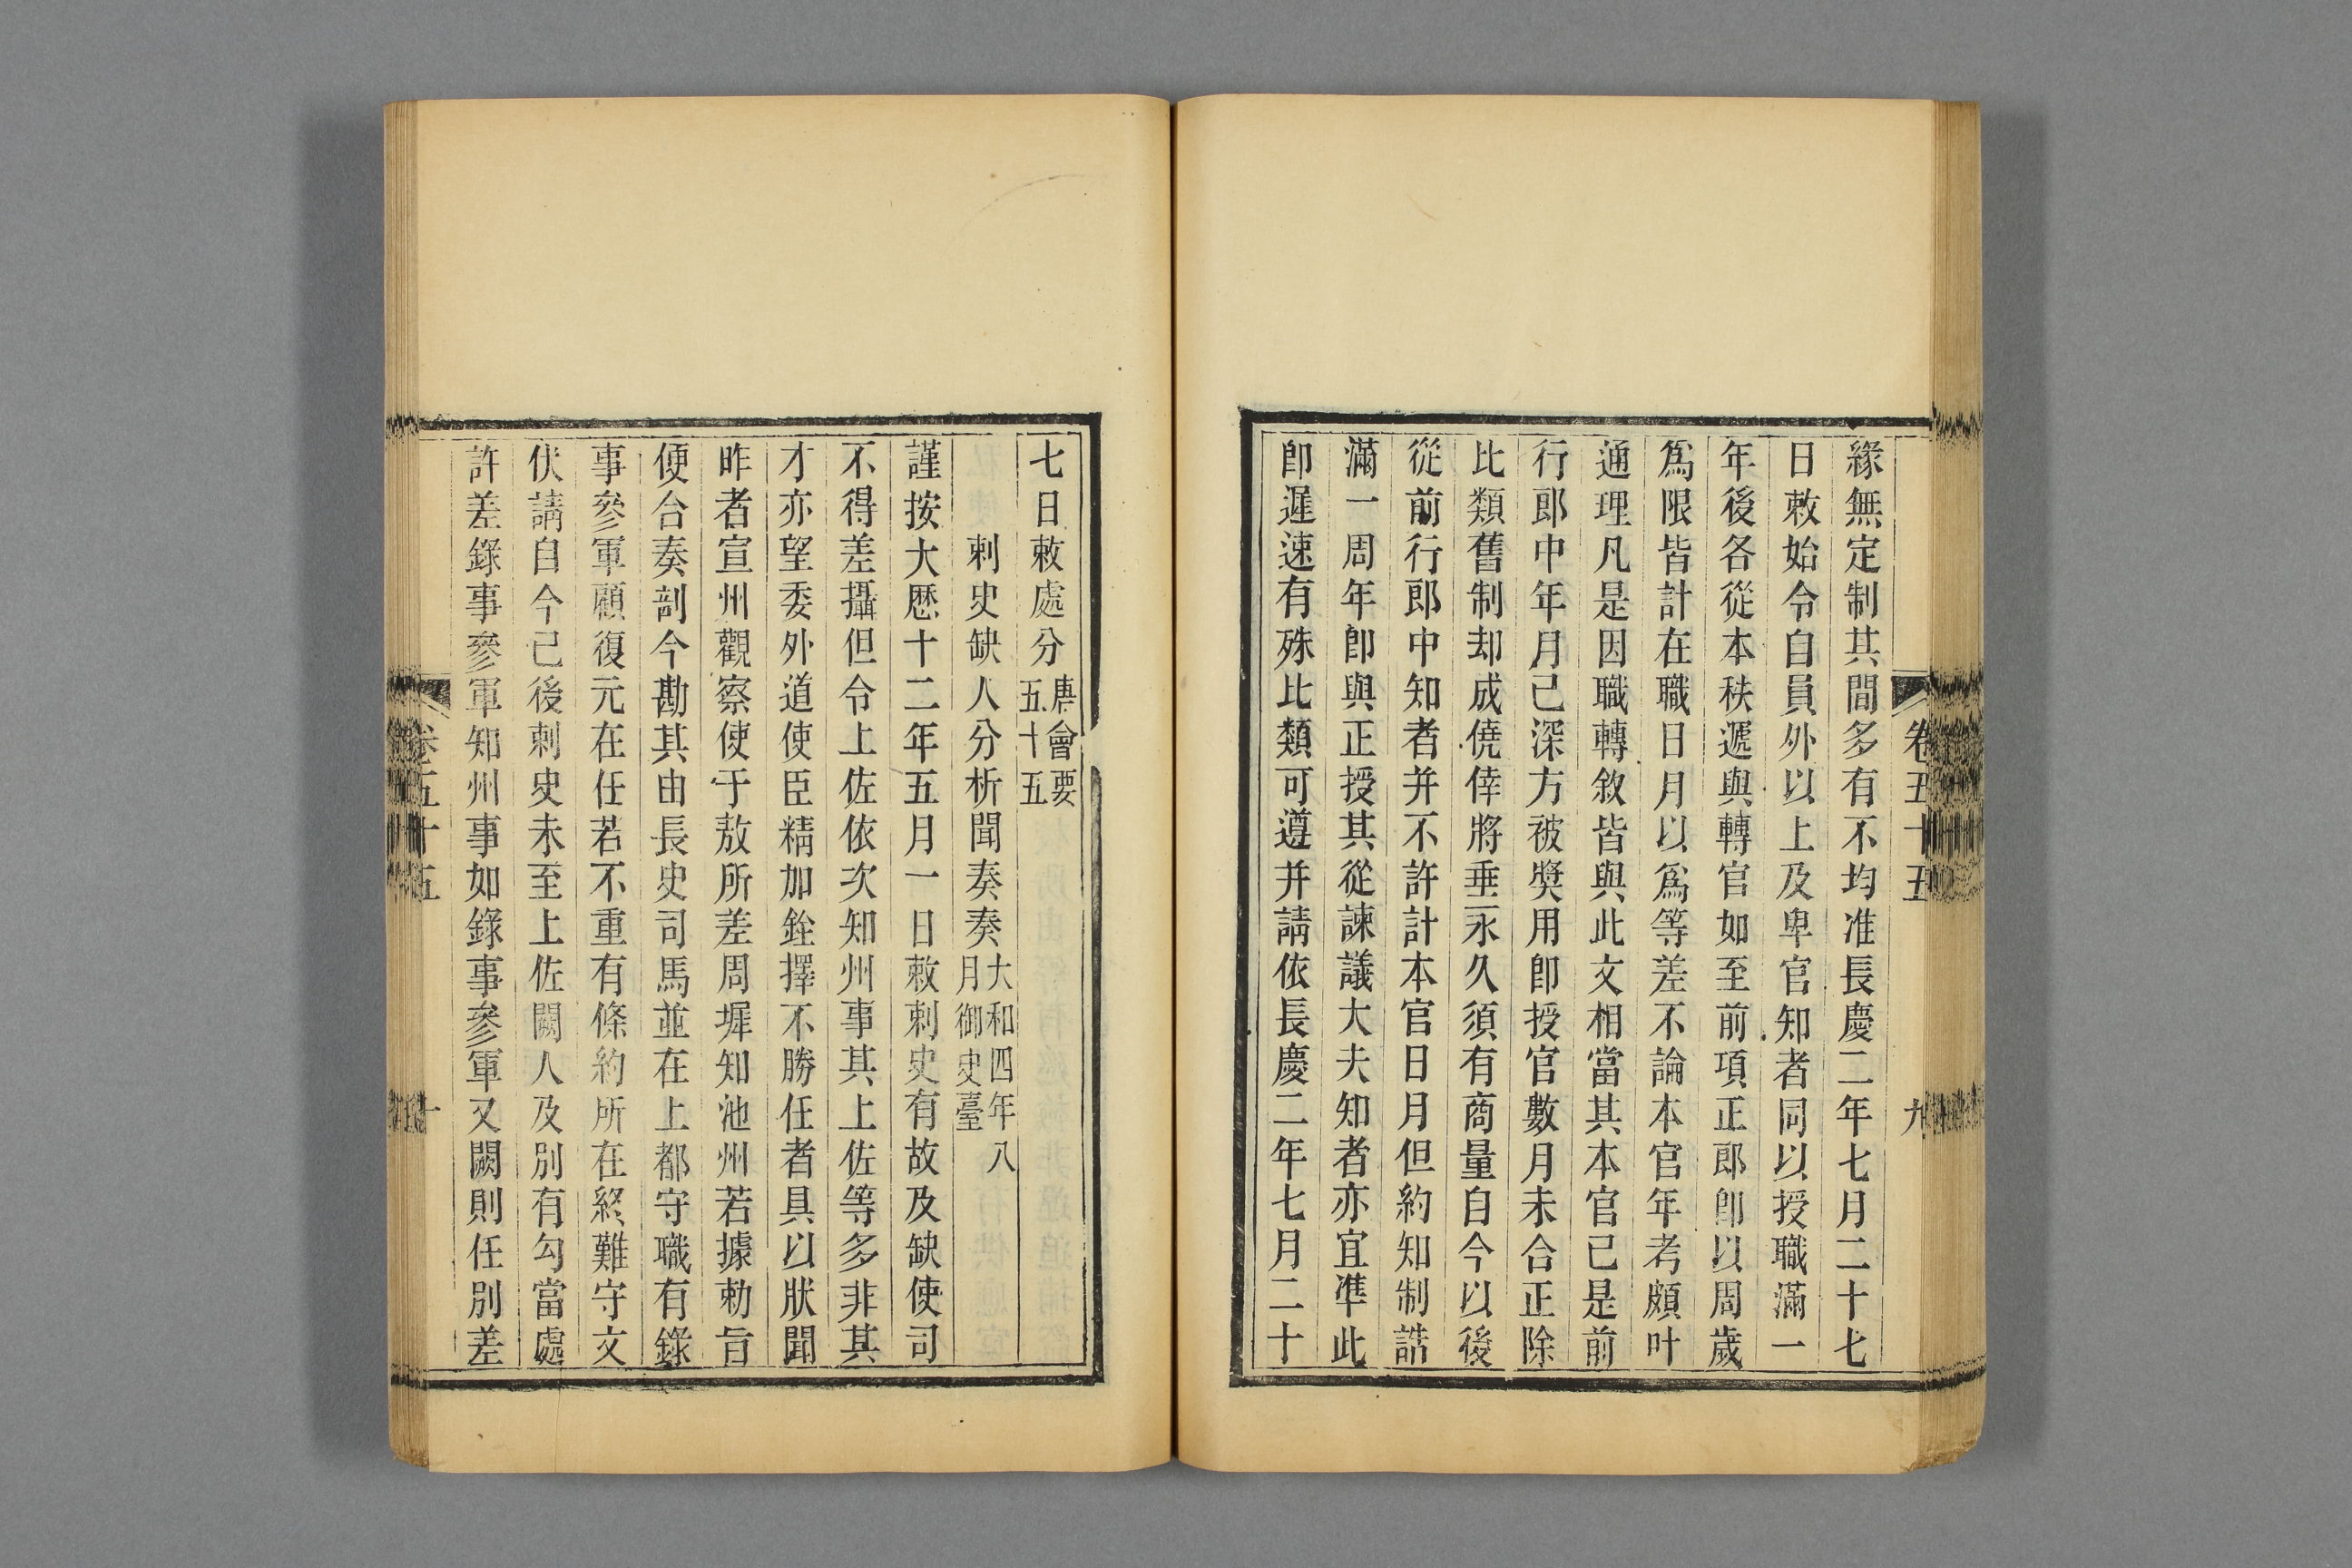 卷五十五 九
緣無定制其間多有不均准長慶二年七月二十七
日敕始令自員外以上及卑官知者同以授職滿一
年後各從本秩遞與轉官如至前項正郎卽以周歲
爲限皆計在職日月以爲等差不論本官年考頗叶
通理凡是因職轉敘皆與此文相當其本官已是前
行郎中年月已深方被獎用卽授官數月未合正除
比類舊制却成僥倖將垂永久須有商量自今以後
從前行郎中知者并不許計本官日月但約知制誥
滿一周年卽與正授其從諫議大夫知者亦宜準此
卽遲速有殊比類可遵并請依長慶二年七月二十
七日敕處分唐會要五十五
刺史缺人分析聞奏奏大和四年八月御史臺
謹按大厯十二年五月一日敕刺史有故及缺使司
不得差攝但令上佐依次知州事其上佐等多非其
才亦望委外道使臣精加銓擇不勝任者具以狀聞
昨者宣州觀察使于敖所差周墀知池州若據勅旨
便合奏剖今勘其由長史司馬並在上都守職有錄
事參軍顧復元在任若不重有條約所在終難守文
伏請自今已後刺史未至上佐闕人及別有勾當處
許差錄事參軍知州事如錄事參軍又闕則任別差
卷五十五 十